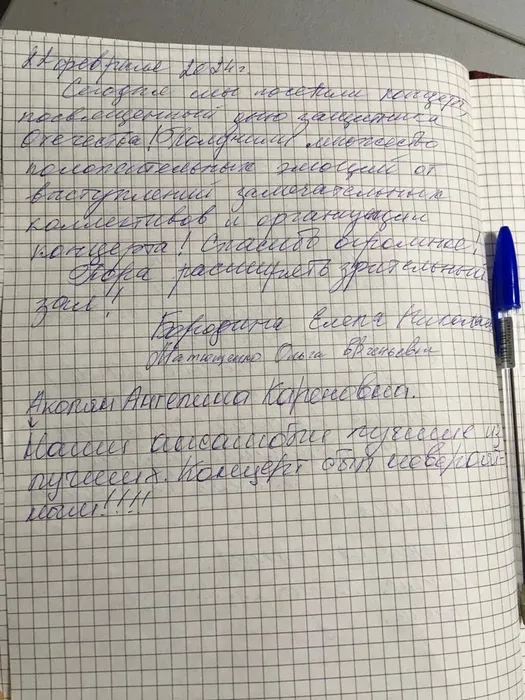 22 февраля 2024г.
Сегодня мы посетили концерт,
посвещенный дню защитника
Отечества! Получили множество
положительных эмоций от
выступлений замечательных
коллективов и организации
концерта! Спасибо огромное!
Пора расширять зрительный
зал!!
Бородина Елена Николаевна
Матющенко Ольга Евгеньевна
Акопян Ангелина Кареновна.
Наши ансамбли лучшие из
лучших. Концерт был невероят-
ным!!!!